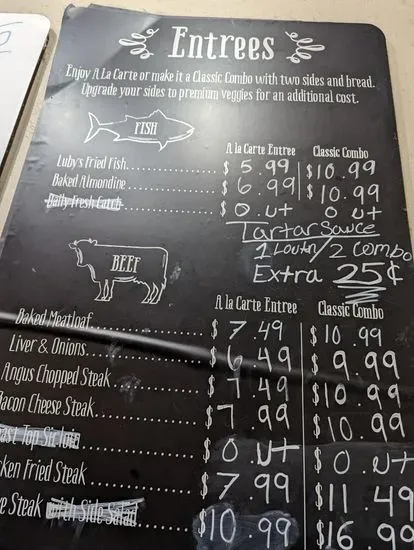 Entrees
Enjoy A La Carte or make it a Classic Combo with two sides and bread.
Upgrade your sides to premium veggies for an additional cost.
FISH
A la Carte Entree Classic Combo
Luby's Fried Fish $ 5.99 $10.99
Baked Almondine $ 6.99 $10.99
Daily Fresh Catch $ O.ut O ut
Tartar Sauce
1 Loutn/2 Combo
Extra 25¢
BEEF
A la Carte Entree Classic Combo
Baked Meatloaf $ 7.49 $10.99
Liver & Onions $6.49 $ 9.99
Angus Chopped Steak $ 7.49 $10.99
acon Cheese Steak $7.99 $10.99
ast Top Sirloin $ O.ut $ O.ut
ken Fried Steak $7.99 $11.49
e Steak with Side Salad $10.99 $16.99